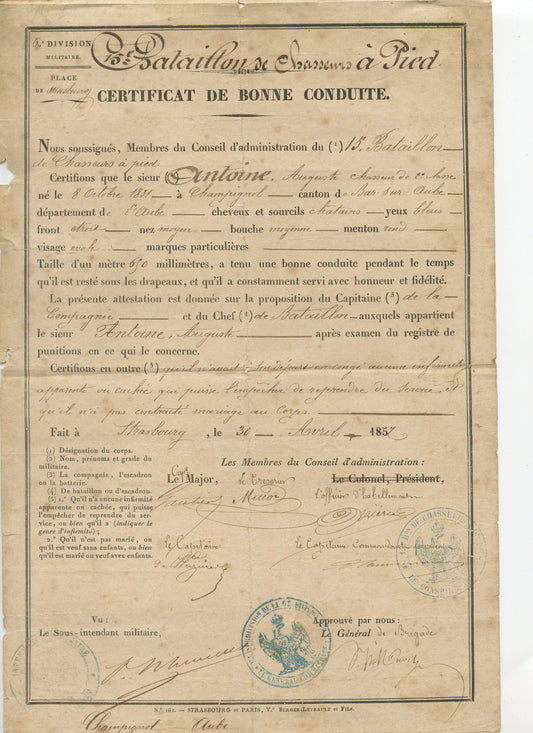 6e DIVISION
MILITAIRE.
PLACE
DE Strasbourg
15e Bataillon de Chasseurs à Pied
CERTIFICAT DE BONNE CONDUITE.
Nous soussignés, Membres du Conseil d'administration du (1) 15. Bataillon
de Chasseurs à pied
Certifions que le sieur (2) Antoine, Auguste chasseur de 2e classe
né le 8 Octobre 1831 à Champignol canton de Bar-sur-Aube
département de l'Aube cheveux et sourcils chatains yeux bleus
front étroit nez moyen bouche moyenne menton rond
visage ovale marques particulières
Taille d'un mètre 650 millimètres, a tenu une bonne conduite pendant le temps
qu'il est resté sous les drapeaux, et qu'il a constamment servi avec honneur et fidélité.
La présente attestation est donnée sur la proposition du Capitaine (3) de la
Compagnie et du Chef (4) de Bataillon auxquels appartient
le sieur Antoine, Auguste après examen du registre de
punitions en ce qui le concerne.
Certifions en outre (5) qu'il n'avait à son départ en congé aucune infirmité
apparente ou cachée qui puisse l'empêcher de reprendre du Service, et
qu'il n'a pas contracté mariage au Corps.
Fait à Strasbourg, le 30 Avril 1857
(1) Désignation du corps.
(2) Nom, prénoms et grade du
militaire.
(3) La compagnie, l'escadron
ou la batterie.
(4) De bataillon ou d'escadron.
(5) 1.° Qu'il n'a aucune infirmité
apparente ou cachée, qui puisse
l'empêcher de reprendre du ser-
vice, ou bien qu'il a (indiquer le
genre d'infirmité);
2.° Qu'il n'est pas marié, ou
qu'il est veuf sans enfants, ou bien
qu'il est marié ou veuf avec enfants.
Les Membres du Conseil d'administration:
Le Major, le Trésorier Le Colonel, Président,
l'officier d'habillement
Le Capitaine
Le Capitaine Commandant
Vu:
Le Sous-intendant militaire,
Approuvé par nous:
Le Général de Brigade
N.° 161. — STRASBOURG et PARIS, V.e BERGER-LEVRAULT et FILS.
Champignol Aube